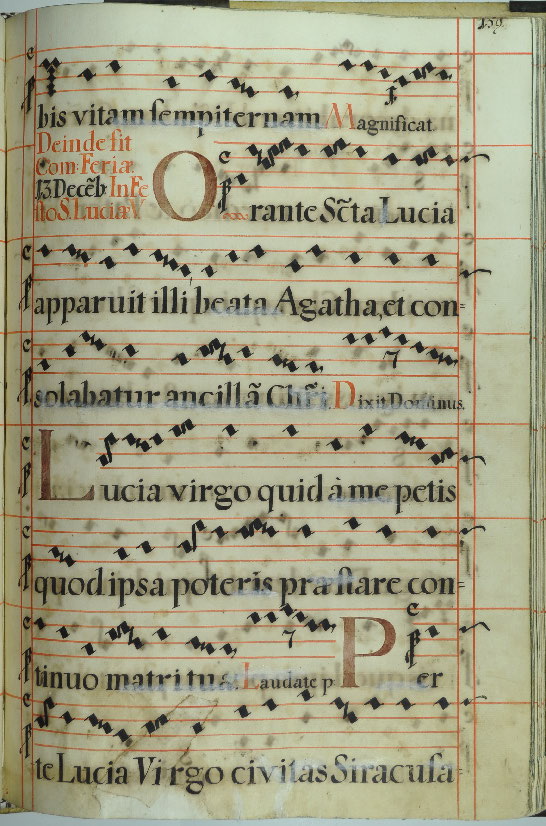 159
bis vitam sempiternam Magnificat
Deinde fit
Com. Feriæ
13 Decēb. In Fe
sto S. Luciæ V.
Orante Sc̃ta Lucia
apparuit illi beata Agatha, et con=
solabatur ancillã Chr̃i. Dixit Dominus.
Lucia virgo quid à me petis
quod ipsa poteris præstare con=
tinuo matri tuæ. Laudate p. Per
te Lucia Virgo civitas Siracusa=